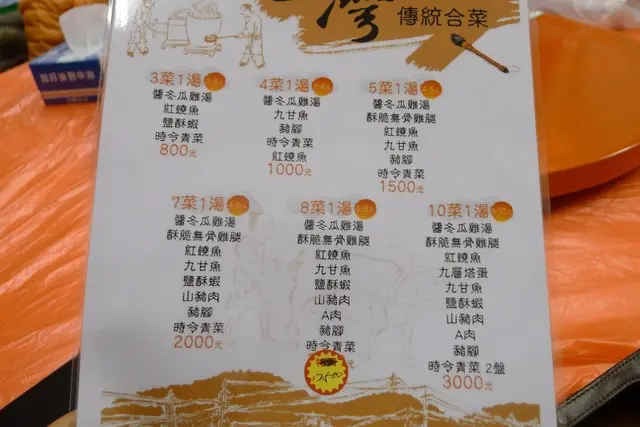 灣
傳統合菜
3菜1湯
醬冬瓜雞湯
紅燒魚
鹽酥蝦
時令青菜
800元
4菜1湯
醬冬瓜雞湯
九甘魚
豬腳
時令青菜
紅燒魚
1000元
5菜1湯
醬冬瓜雞湯
酥脆無骨雞腿
紅燒魚
九甘魚
豬腳
時令青菜
1500元
7菜1湯
醬冬瓜雞湯
酥脆無骨雞腿
紅燒魚
九甘魚
鹽酥蝦
山豬肉
豬腳
時令青菜
2000元
8菜1湯
醬冬瓜雞湯
酥脆無骨雞腿
紅燒魚
九甘魚
鹽酥蝦
山豬肉
A肉
豬腳
時令青菜
2500
10菜1湯
醬冬瓜雞湯
酥脆無骨雞腿
紅燒魚
九層塔蛋
九甘魚
鹽酥蝦
山豬肉
A肉
豬腳
時令青菜 2盤
3000元